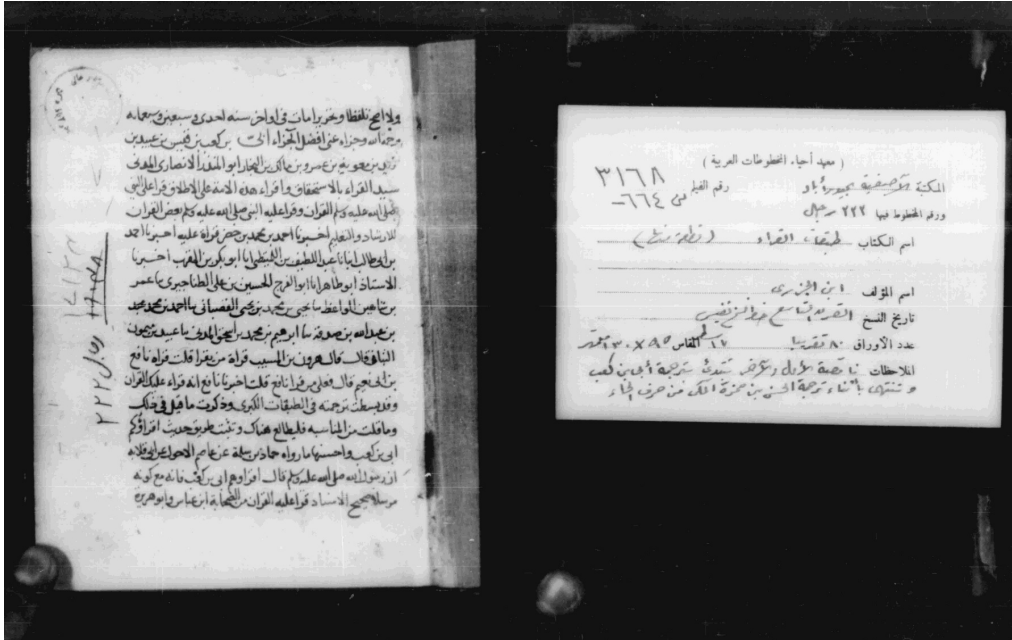 ولا افصح تلفظا وتحريرا مات في اواخر سنة احدى وسبعين وسبعمائه
رحمه الله وجزاه عني افضل الجزاء ابي بن كعب بن قيس بن عبيد بن
زيد بن معوية بن عمرو بن مالك بن النجار ابو المنذر الانصاري المدني
سيد القراء بالاستحقاق واقراء هذه الامة على الاطلاق قرا على النبي
صلى الله عليه وسلم القران وقرا عليه النبي صلى الله عليه وسلم بعض القران
للارشاد والتعليم اخبرنا احمد بن محمد بن خضر قراة عليه اخبرنا احمد
بن ابي طالب انبانا عبد اللطيف بن القبيطي انا ابو بكر بن المقرب اخبرنا
الاستاذ ابو طاهر انا ابو الفرج الحسين بن علي الطناجيري نا عمر
بن شاهين الواعظ نا يحيى بن محمد بن يحيى القصباني نا احمد بن محمد
بن عبد الله بن صدقة نا ابرهيم بن محمد بن اسحق المدني نا عبيد بن ميمون
التبان قال قال هرون بن المسيب قراة من تقرا قلت قراة نافع
بن ابي نعيم قال فعلى من قرا نافع قلت اخبرنا نافع انه قرا على الاعرج
وقد بسطت ترجمته في الطبقات الكبرى وذكرت ما قيل في ذلك
وما قلت من المناسبه فليطالع هناك وتتبعت طريق حديث اقراؤكم
ابي بن كعب واحسنها ما رواه حماد بن سلمة عن عاصم الاحول عن ابي قلابه
ان رسول الله صلى الله عليه وسلم قال اقراوهم ابي بن كعب فانه مع كونه
مرسلا صحيح الاسناد قرا عليه القران من الصحابة ابن عباس وابو هريرة
رجال ٢٢٢
( معهد أحياء المخطوطات العربية )
٣١٦٨
المكتبة الآصفية بحيدرآباد رقم الفيلم
ف ٦٦٤
ورقم المخطوط فيها ٢٢٢ رجال
اسم الكتاب طبقات القراء
اسم المؤلف ابن الجزري
تاريخ النسخ القرن التاسع خط نسخ نفيس
عدد الأوراق ٨٠ تقريبا ١٧ س المقاس
الملاحظات ناقصة الأول والآخر تبتدئ بترجمة أبي بن كعب
وتنتهي بأثناء ترجمة الحسن بن حمزة المكي من حرف الحاء